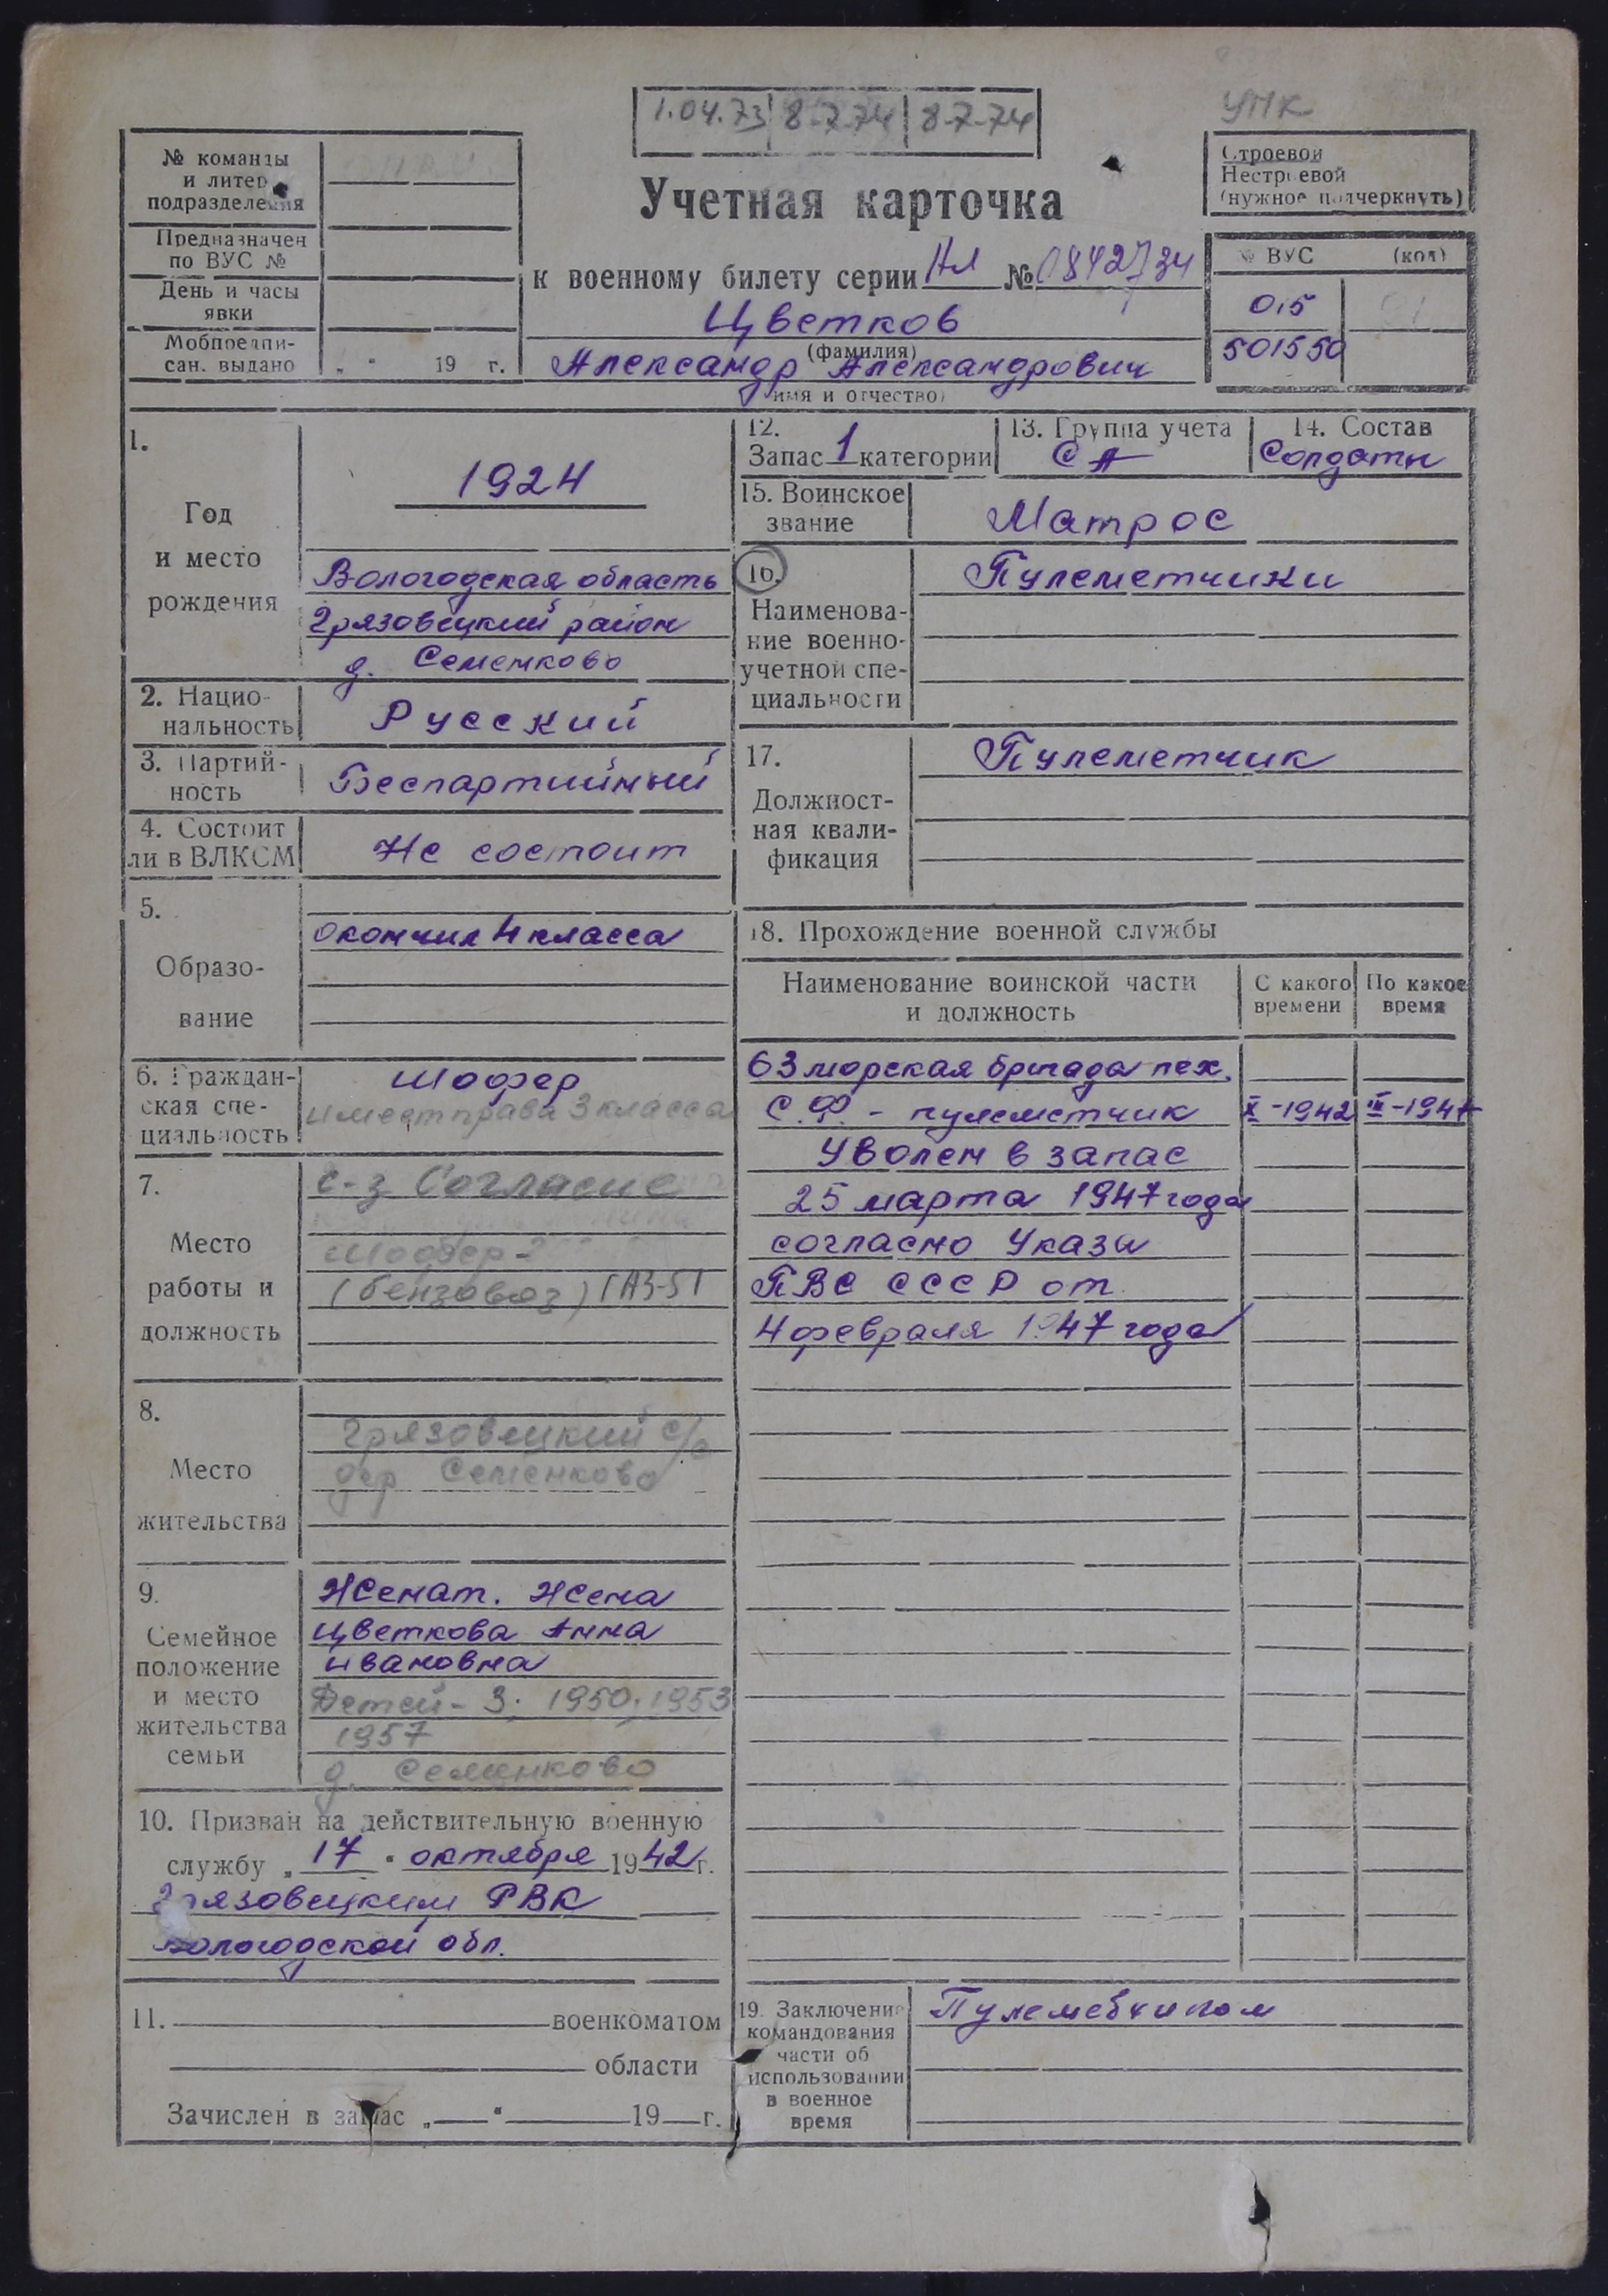 УПК
1.04.73 8-7-74 8-7-74
№ команды
и литер
подразделения
Предназначен
по ВУС №
День и часы
явки
Мобпредпи-
сан. выдано „ “ 19 г.
Строевой
Нестроевой
(нужное подчеркнуть)
Учетная карточка
к военному билету серии НЛ № 0842734
Цветков
(фамилия)
Александр Александрович
(имя и отчество)
№ ВУС (код)
015
501550
1.
Год
и место
рождения
1924
Вологодская область
Грязовецкий район
д. Семенково
2. Нацио-
нальность
Русский
3. Партий-
ность
Беспартийный
4. Состоит
ли в ВЛКСМ
Не состоит
5.
Образо-
вание
Окончил 4 класса
6. Граждан-
ская спе-
циальность
Шофер
имеет права 3 класса
7.
Место
работы и
должность
с-з Согласие
Шофер -
(бензовоз) ГАЗ-51
8.
Место
жительства
Грязовецкий с/с
дер Семенково
9.
Семейное
положение
и место
жительства
семьи
Женат. Жена
Цветкова Анна
Ивановна
Детей - 3. 1950, 1953
1957
д. Семенково
10. Призван на действительную военную
службу „ 17 “ октября 1942 г.
Грязовецким РВК
Вологодской обл.
11. военкоматом
области
Зачислен в запас „ “ 19 г.
12.
Запас 1 категории
13. Группа учета
СА
14. Состав
Солдаты
15. Воинское
звание
Матрос
16.
Наименова-
ние военно-
учетной спе-
циальности
Пулеметчики
17.
Должност-
ная квали-
фикация
Пулеметчик
18. Прохождение военной службы
Наименование воинской части
и должность
С какого
времени
По какое
время
63 морская бригада пех.
С.Ф. - пулеметчик X-1942 III-1947
Уволен в запас
25 марта 1947 года
согласно Указы
ПВС СССР от
4 февраля 1947 года
19. Заключение
командования
части об
использовании
в военное
время
Пулеметчиком